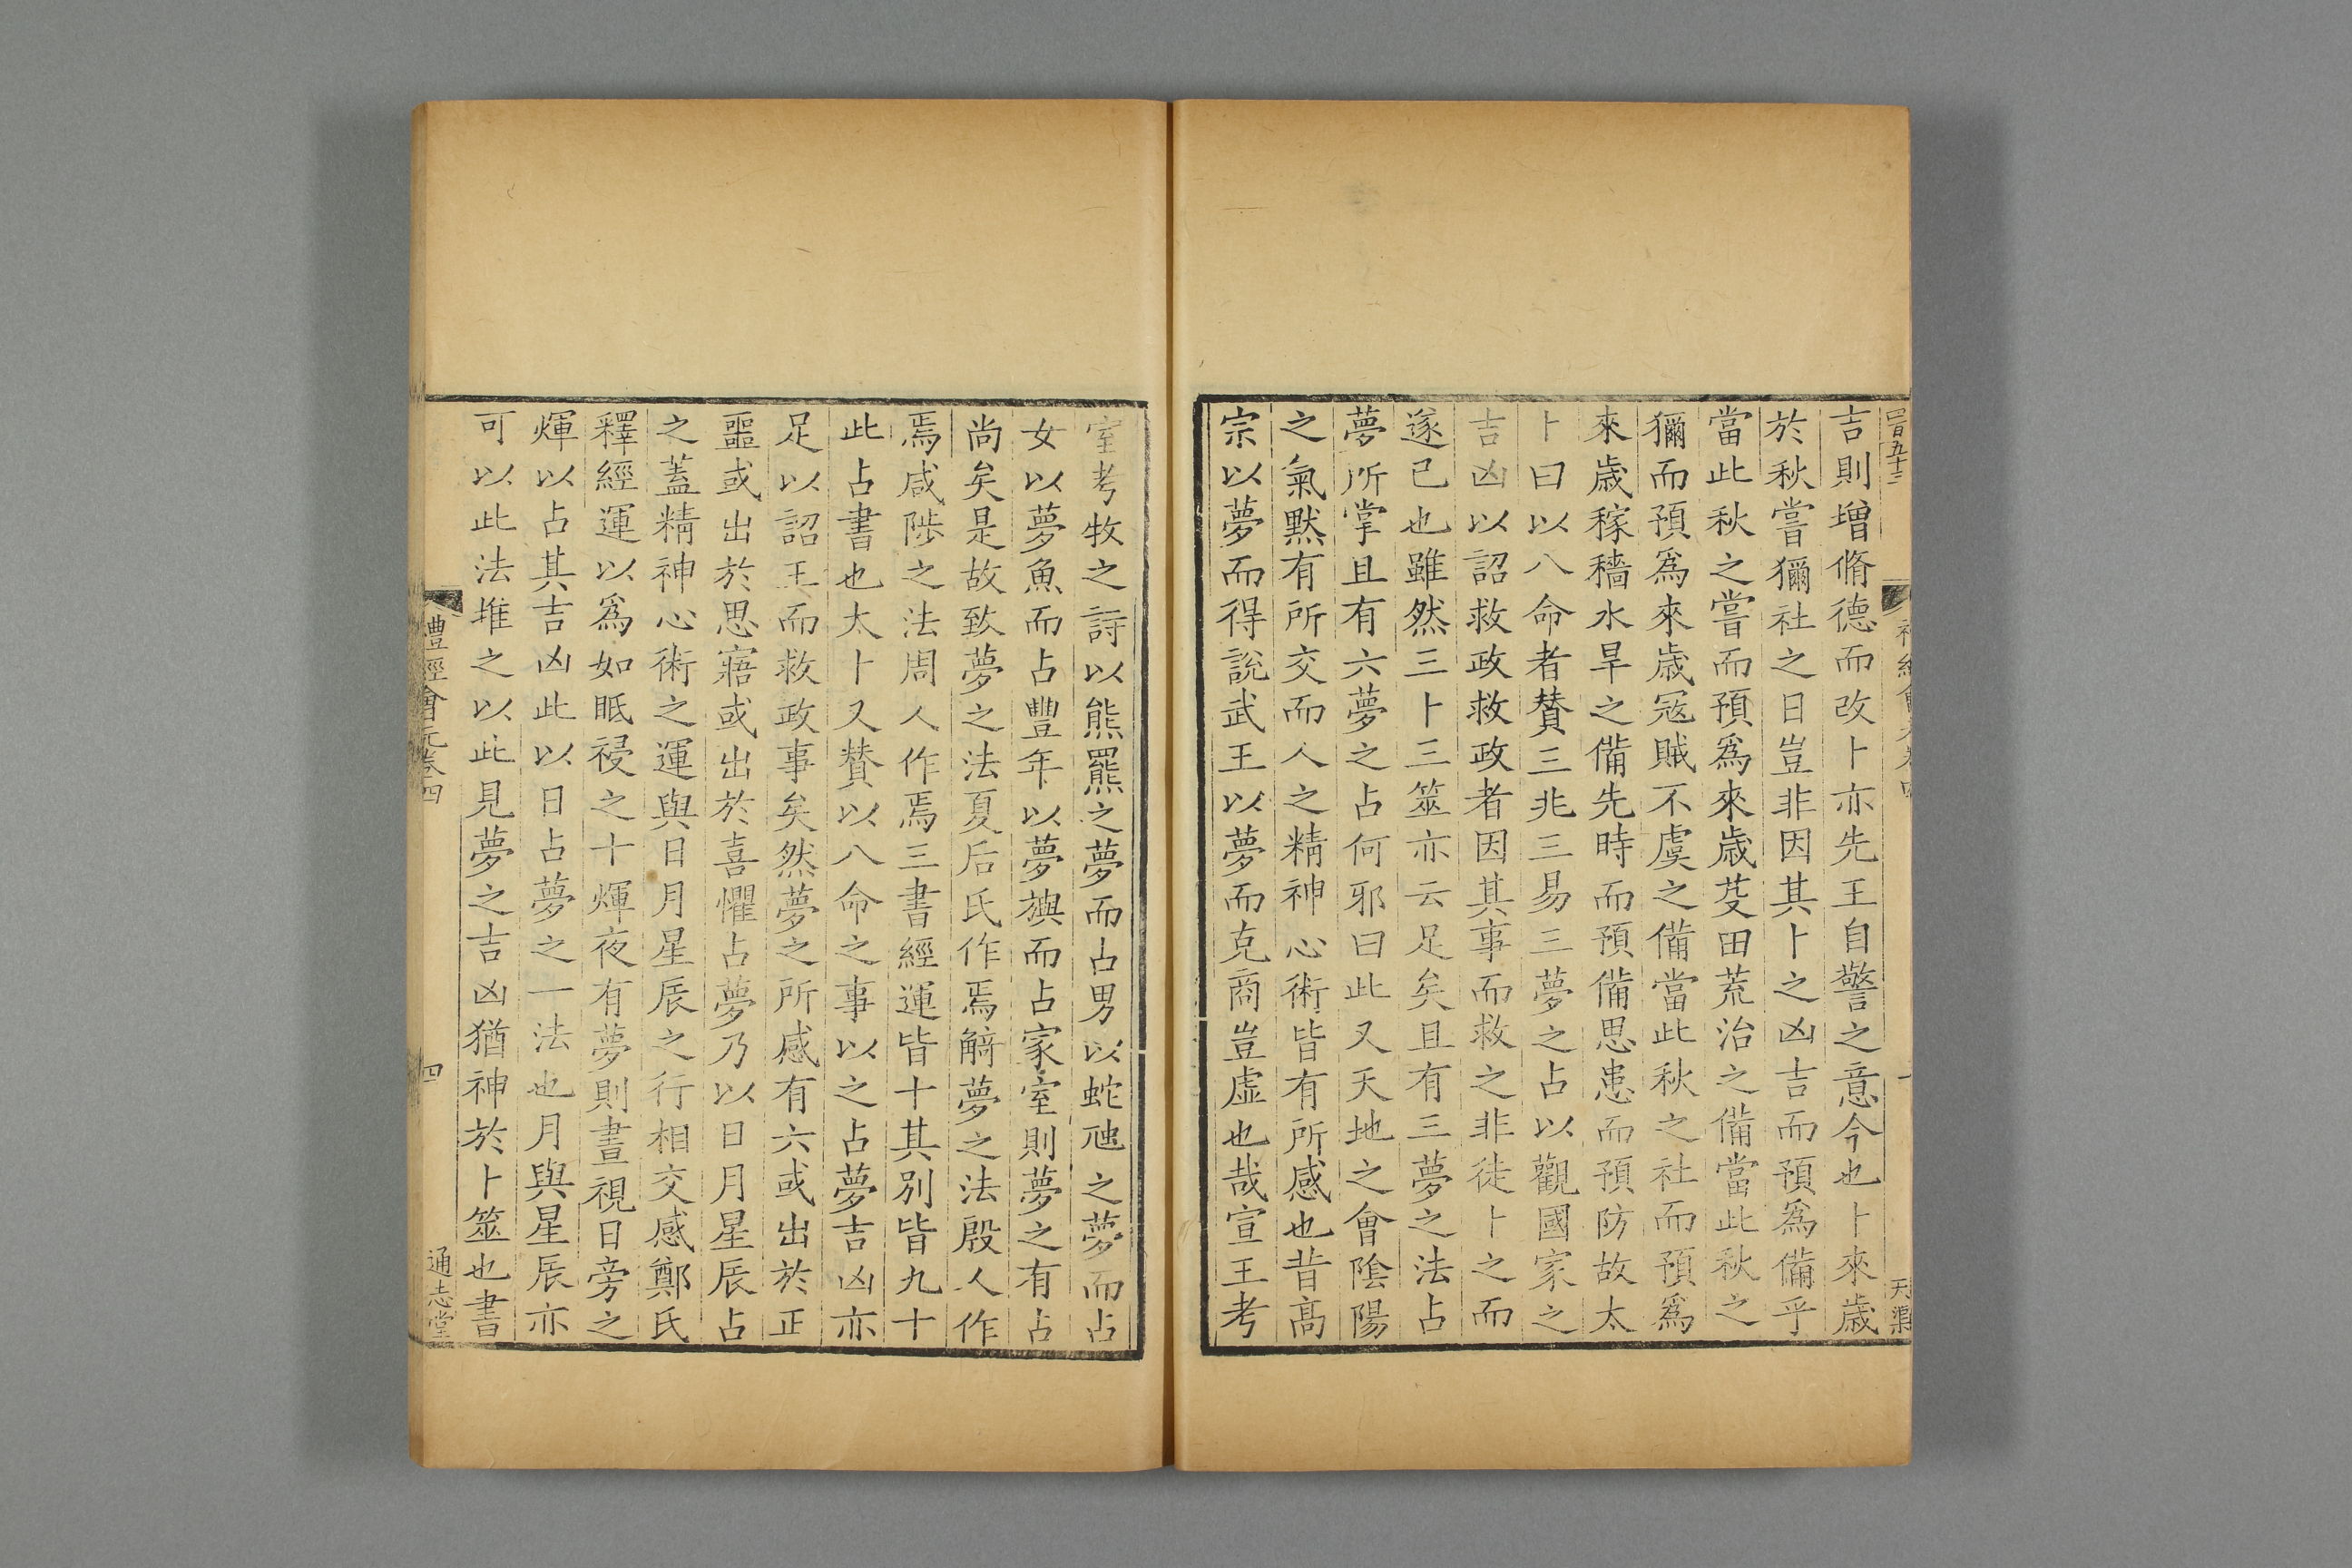 四百五十三
吉則增脩德而改卜亦先王自警之意今也卜來歲
於秋嘗獮社之日豈非因其卜之凶吉而預爲備乎
當此秋之嘗而預爲來歲芟田荒治之備當此秋之
獮而預爲來歲冦賊不虞之備當此秋之社而預爲
來歲稼穡水旱之備先時而預備思患而預防故太
卜曰以八命者賛三兆三易三夢之占以觀國家之
吉凶以詔救政救政者因其事而救之非徒卜之而
遂已也雖然三卜三筮亦云足矣且有三夢之法占
夢所掌且有六夢之占何邪曰此又天地之會隂陽
之氣黙有所交而人之精神心術皆有所感也昔髙
宗以夢而得說武王以夢而克商豈虚也哉宣王考
室考牧之詩以熊羆之夢而占男以蛇虺之夢而占
女以夢魚而占豐年以夢旟而占家室則夢之有占
尚矣是故致夢之法夏后氏作焉觭夢之法殷人作
焉咸陟之法周人作焉三書經運皆十其別皆九十
此占書也太卜又賛以八命之事以之占夢吉凶亦
足以詔王而救政事矣然夢之所感有六或出於正
噩或出於思寤或出於喜懼占夢乃以日月星辰占
之蓋精神心術之運與日月星辰之行相交感鄭氏
釋經運以爲如眡祲之十煇夜有夢則晝視日旁之
煇以占其吉凶此以日占夢之一法也月與星辰亦
可以此法推之以此見夢之吉凶猶神於卜筮也書
禮經會元卷四
四
通志堂